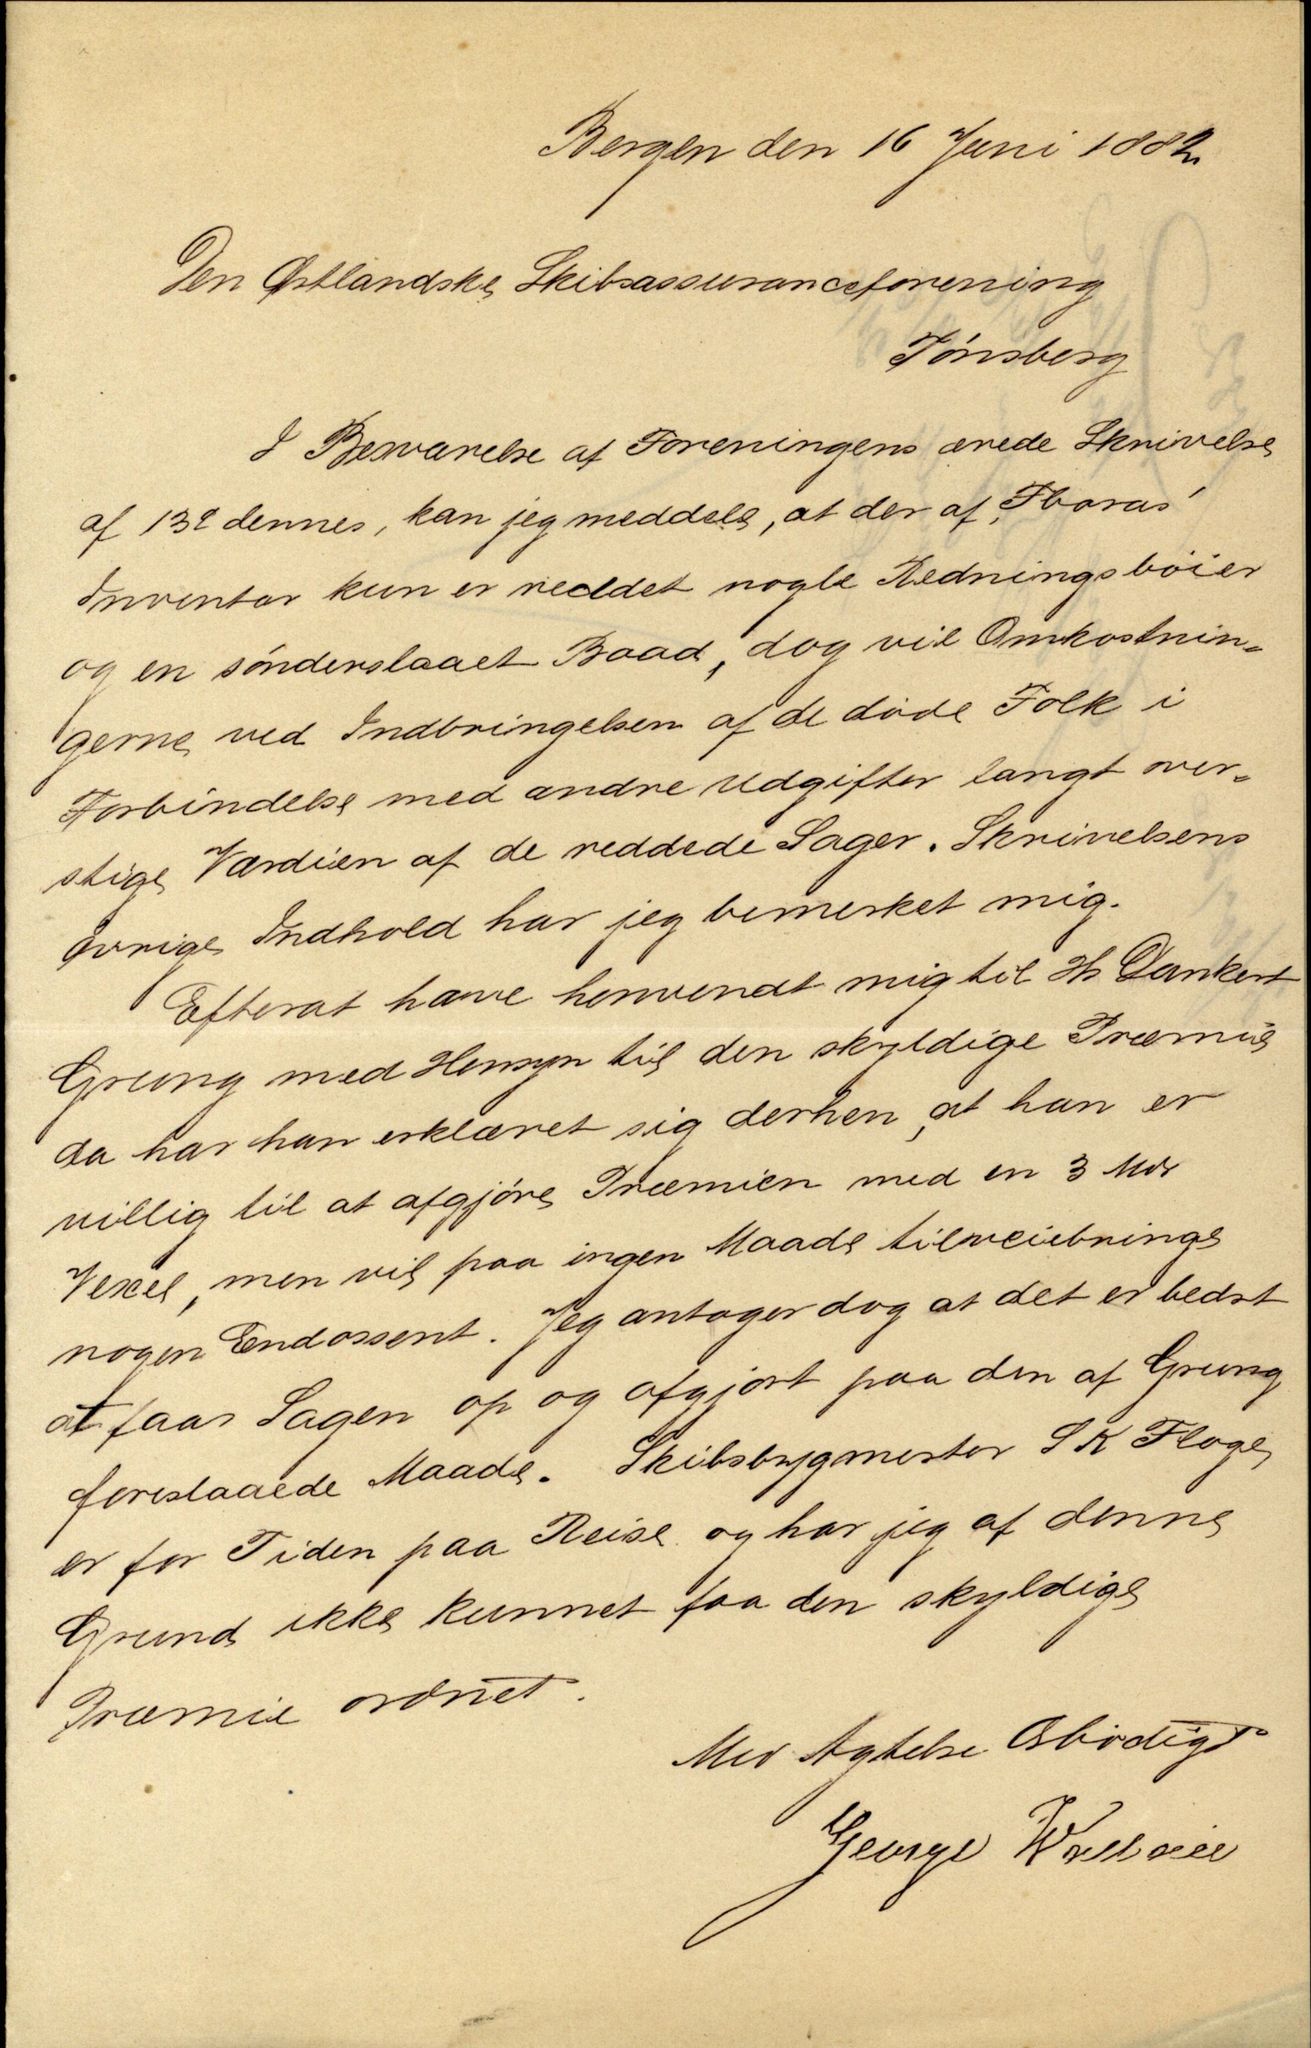 Bergen den 16 Juni 1882
Den Østlandske Skibsassuranceforening
Tønsberg
I Besvarelse af Foreningens ærede Skrivelse
af 13de dennes, kan jeg meddele, at der af „Thoras"
Inventar kun er reddet nogle Redningsbøier
og en sønderslaaet Baad, dog vil Omkostnin-
gerne ved Indbringelsen af de døde Folk i
Forbindelse med andre Udgifter langt over-
stige Værdien af de reddede Sager. Skrivelsens
øvrige Indhold har jeg bemerket mig.
Efterat have henvendt mig til Hr Dankert
Grung med Hensyn til den skyldige Præmie
da har han erklæret sig derhen, at han er
villig til at afgjøre Præmien med en 3 Mdr
Vexel, men vil paa ingen Maade tilveiebringe
nogen Endossent. Jeg antager dog at det er bedst
at faar Sagen op og afgjort paa den af Grung
foreslaaede Maade. Skibsbygmester S K Flage
er for Tiden paa Reise og har jeg af denne
Grund ikke kunnet faa den skyldige
Præmie ordnet.
Med Agtelse Ærbødigst
George